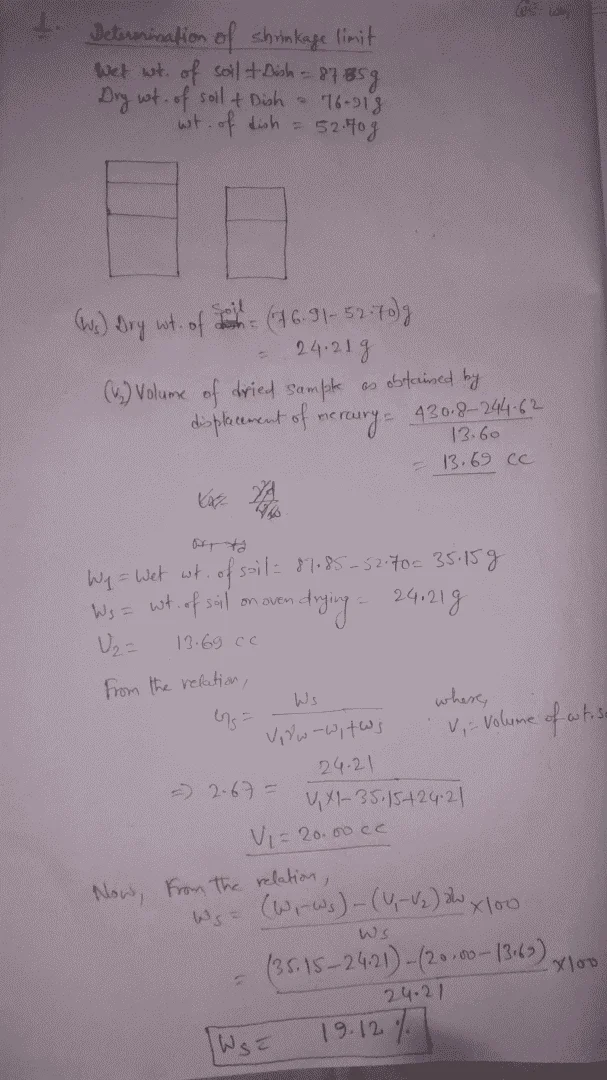 1. Determination of shrinkage limit
Wet wt. of soil + Dish = 87.85g
Dry wt. of soil + Dish = 76.91g
wt. of dish = 52.70g
(Ws) Dry wt. of soil = (76.91-52.70)g
= 24.21 g
(V2) Volume of dried sample as obtained by
displacement of mercury = 430.8-244.62
13.60
= 13.69 cc
W1 = Wet wt. of soil = 87.85-52.70 = 35.15g
Ws = wt. of soil on oven drying = 24.21 g
V2 = 13.69 cc
From the relation,
Gs = Ws
V1γw-W1+Ws
where,
V1 = Volume of wt. s
=> 2.67 = 24.21
V1×1-35.15+24.21
V1 = 20.00 cc
Now, From the relation,
Ws = (W1-Ws)-(V1-V2)γw ×100
Ws
= (35.15-24.21)-(20.00-13.69) ×100
24.21
Ws = 19.12 %